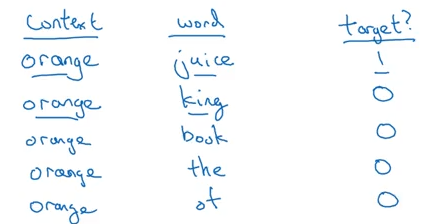 Context word target?
orange juice 1
orange king 0
orange book 0
orange the 0
orange of 0